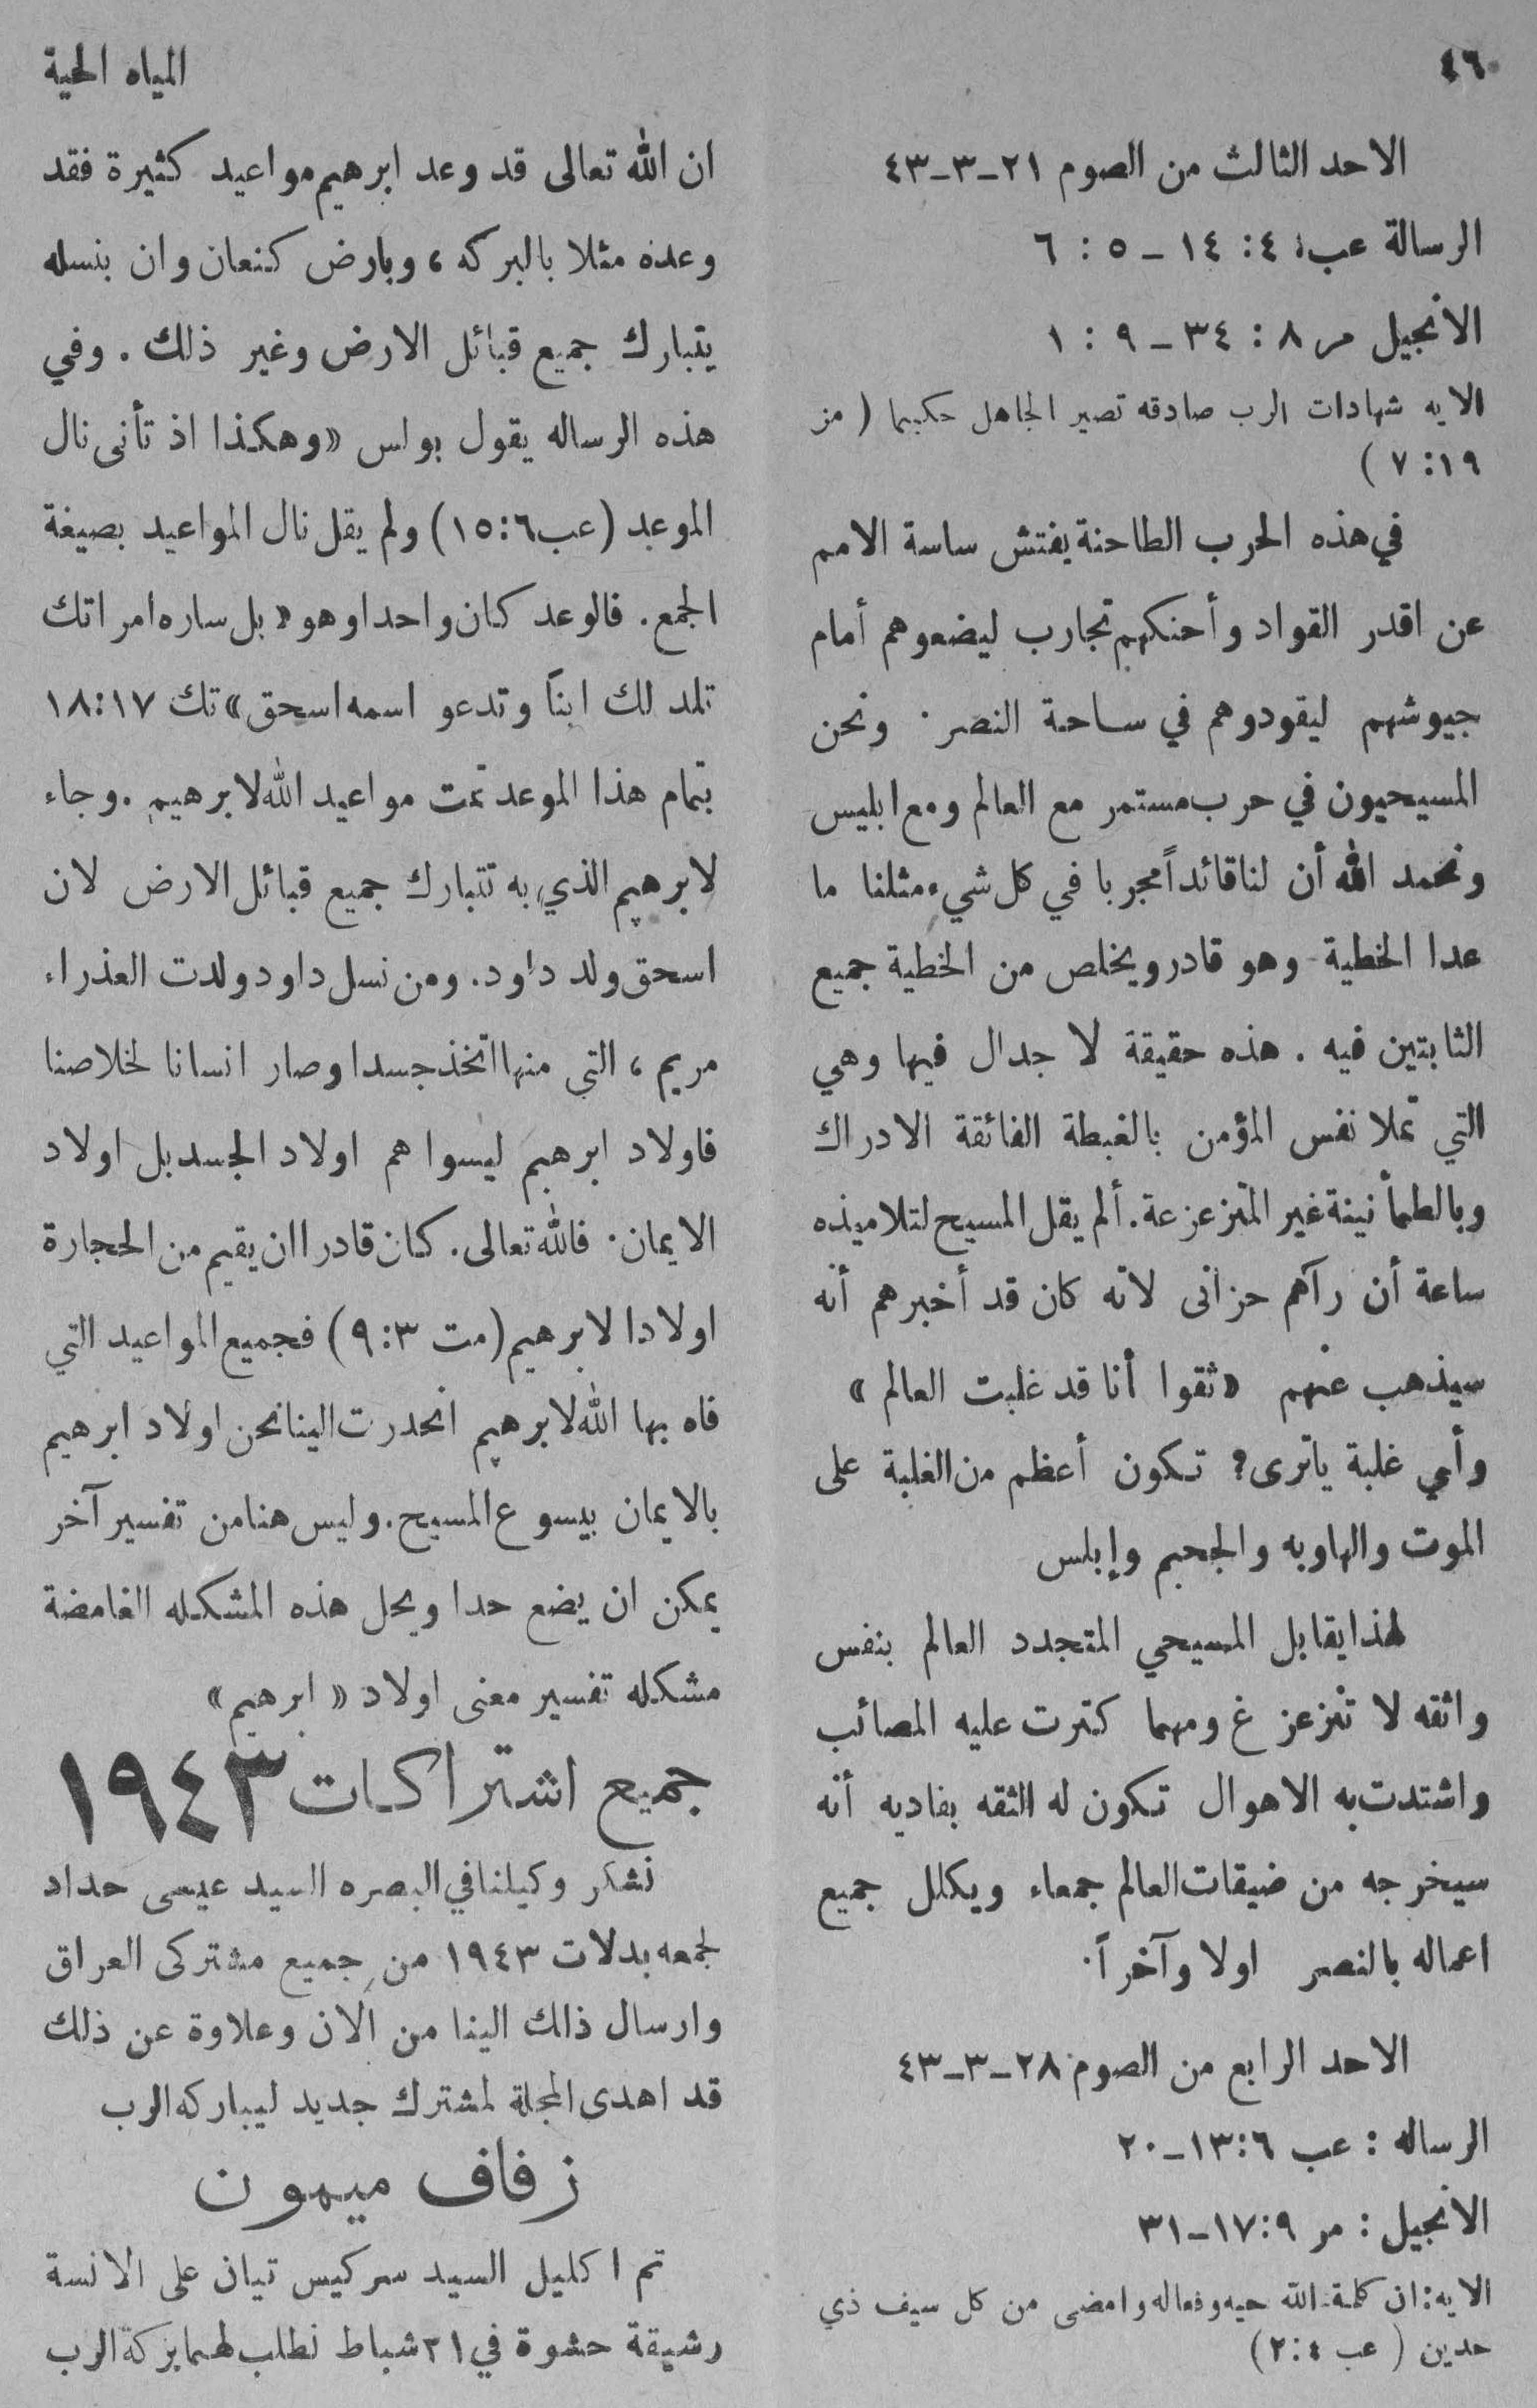 ٤٦
المياه الحية
الاحد الثالث من الصوم ٢١-٣-٤٣
الرسالة عب: ٤: ١٤ - ٥ : ٦
الانجيل مر ٨ : ٣٤ - ٩ : ١
الايه شهادات الرب صادقه تصير الجاهل حكيما ( مز
١٩: ٧ )
في هذه الحرب الطاحنة يفتش ساسة الامم
عن اقدر القواد وأحنكهم تجارب ليضعوهم أمام
جيوشهم ليقودوهم في ساحة النصر. ونحن
المسيحيون في حرب مستمر مع العالم ومع ابليس
ونحمد الله أن لنا قائداً مجربا في كل شيء مثلنا ما
عدا الخطية وهو قادر ويخلص من الخطية جميع
الثابتين فيه . هذه حقيقة لا جدال فيها وهي
التي تملا نفس المؤمن بالغبطة الفائقة الادراك
وبالطمأنينة غير المتزعزعة. ألم يقل المسيح لتلاميذه
ساعة أن رآهم حزانى لانه كان قد أخبرهم أنه
سيذهب عنهم «ثقوا أنا قد غلبت العالم »
وأي غلبة ياترى؟ تكون أعظم من الغلبة على
الموت والهاويه والجحيم وإبلس
لهذا يقابل المسيحي المتجدد العالم بنفس
واثقه لا تتزعز غ ومهما كثرت عليه المصائب
واشتدت به الاهوال تكون له الثقه بفاديه أنه
سيخرجه من ضيقات العالم جمعاء ويكلل جميع
اعماله بالنصر اولا وآخراً.
الاحد الرابع من الصوم ٢٨-٣-٤٣
الرساله : عب ٦:١٣-٢٠
الانجيل : مر ٩:١٧-٣١
الايه: ان كلمة الله حيه وفعاله وامضى من كل سيف ذي
حدين ( عب ٤:٢)
ان الله تعالى قد وعد ابرهيم مواعيد كثيرة فقد
وعده مثلا بالبركه ، وبارض كنعان وان بنسله
يتبارك جميع قبائل الارض وغير ذلك . وفي
هذه الرساله يقول بولس «وهكذا اذ تأنى نال
الموعد (عب٦:١٥) ولم يقل نال المواعيد بصيغة
الجمع. فالوعد كان واحدا وهو «بل ساره امراتك
تلد لك ابناً وتدعو اسمه اسحق» تك ١٧:١٨
بتمام هذا الموعد تمت مواعيد الله لابرهيم .وجاء
لابرهيم الذي به تتبارك جميع قبائل الارض لان
اسحق ولد داود. ومن نسل داود ولدت العذراء
مريم ، التي منها اتخذ جسدا وصار انسانا لخلاصنا
فاولاد ابرهيم ليسوا هم اولاد الجسد بل اولاد
الايمان. فالله تعالى. كان قادرا ان يقيم من الحجارة
اولادا لابرهيم (مت ٣:٩) فجميع المواعيد التي
فاه بها الله لابرهيم انحدرت الينا نحن اولاد ابرهيم
بالايمان بيسوع المسيح. وليس هنا من تفسير آخر
يمكن ان يضع حدا ويحل هذه المشكله الغامضة
مشكله تفسير معنى اولاد « ابرهيم»
جميع اشتراكات ١٩٤٣
نشكر وكيلنا في البصره السيد عيسى حداد
لجمعه بدلات ١٩٤٣ من جميع مشتركى العراق
وارسال ذلك الينا من الان وعلاوة عن ذلك
قد اهدى المجلة لمشترك جديد ليباركه الرب
زفاف ميهون
تم اكليل السيد سركيس تيان على الانسة
رشيقة حشوة في ٢١ شباط نطلب لهما بركة الرب